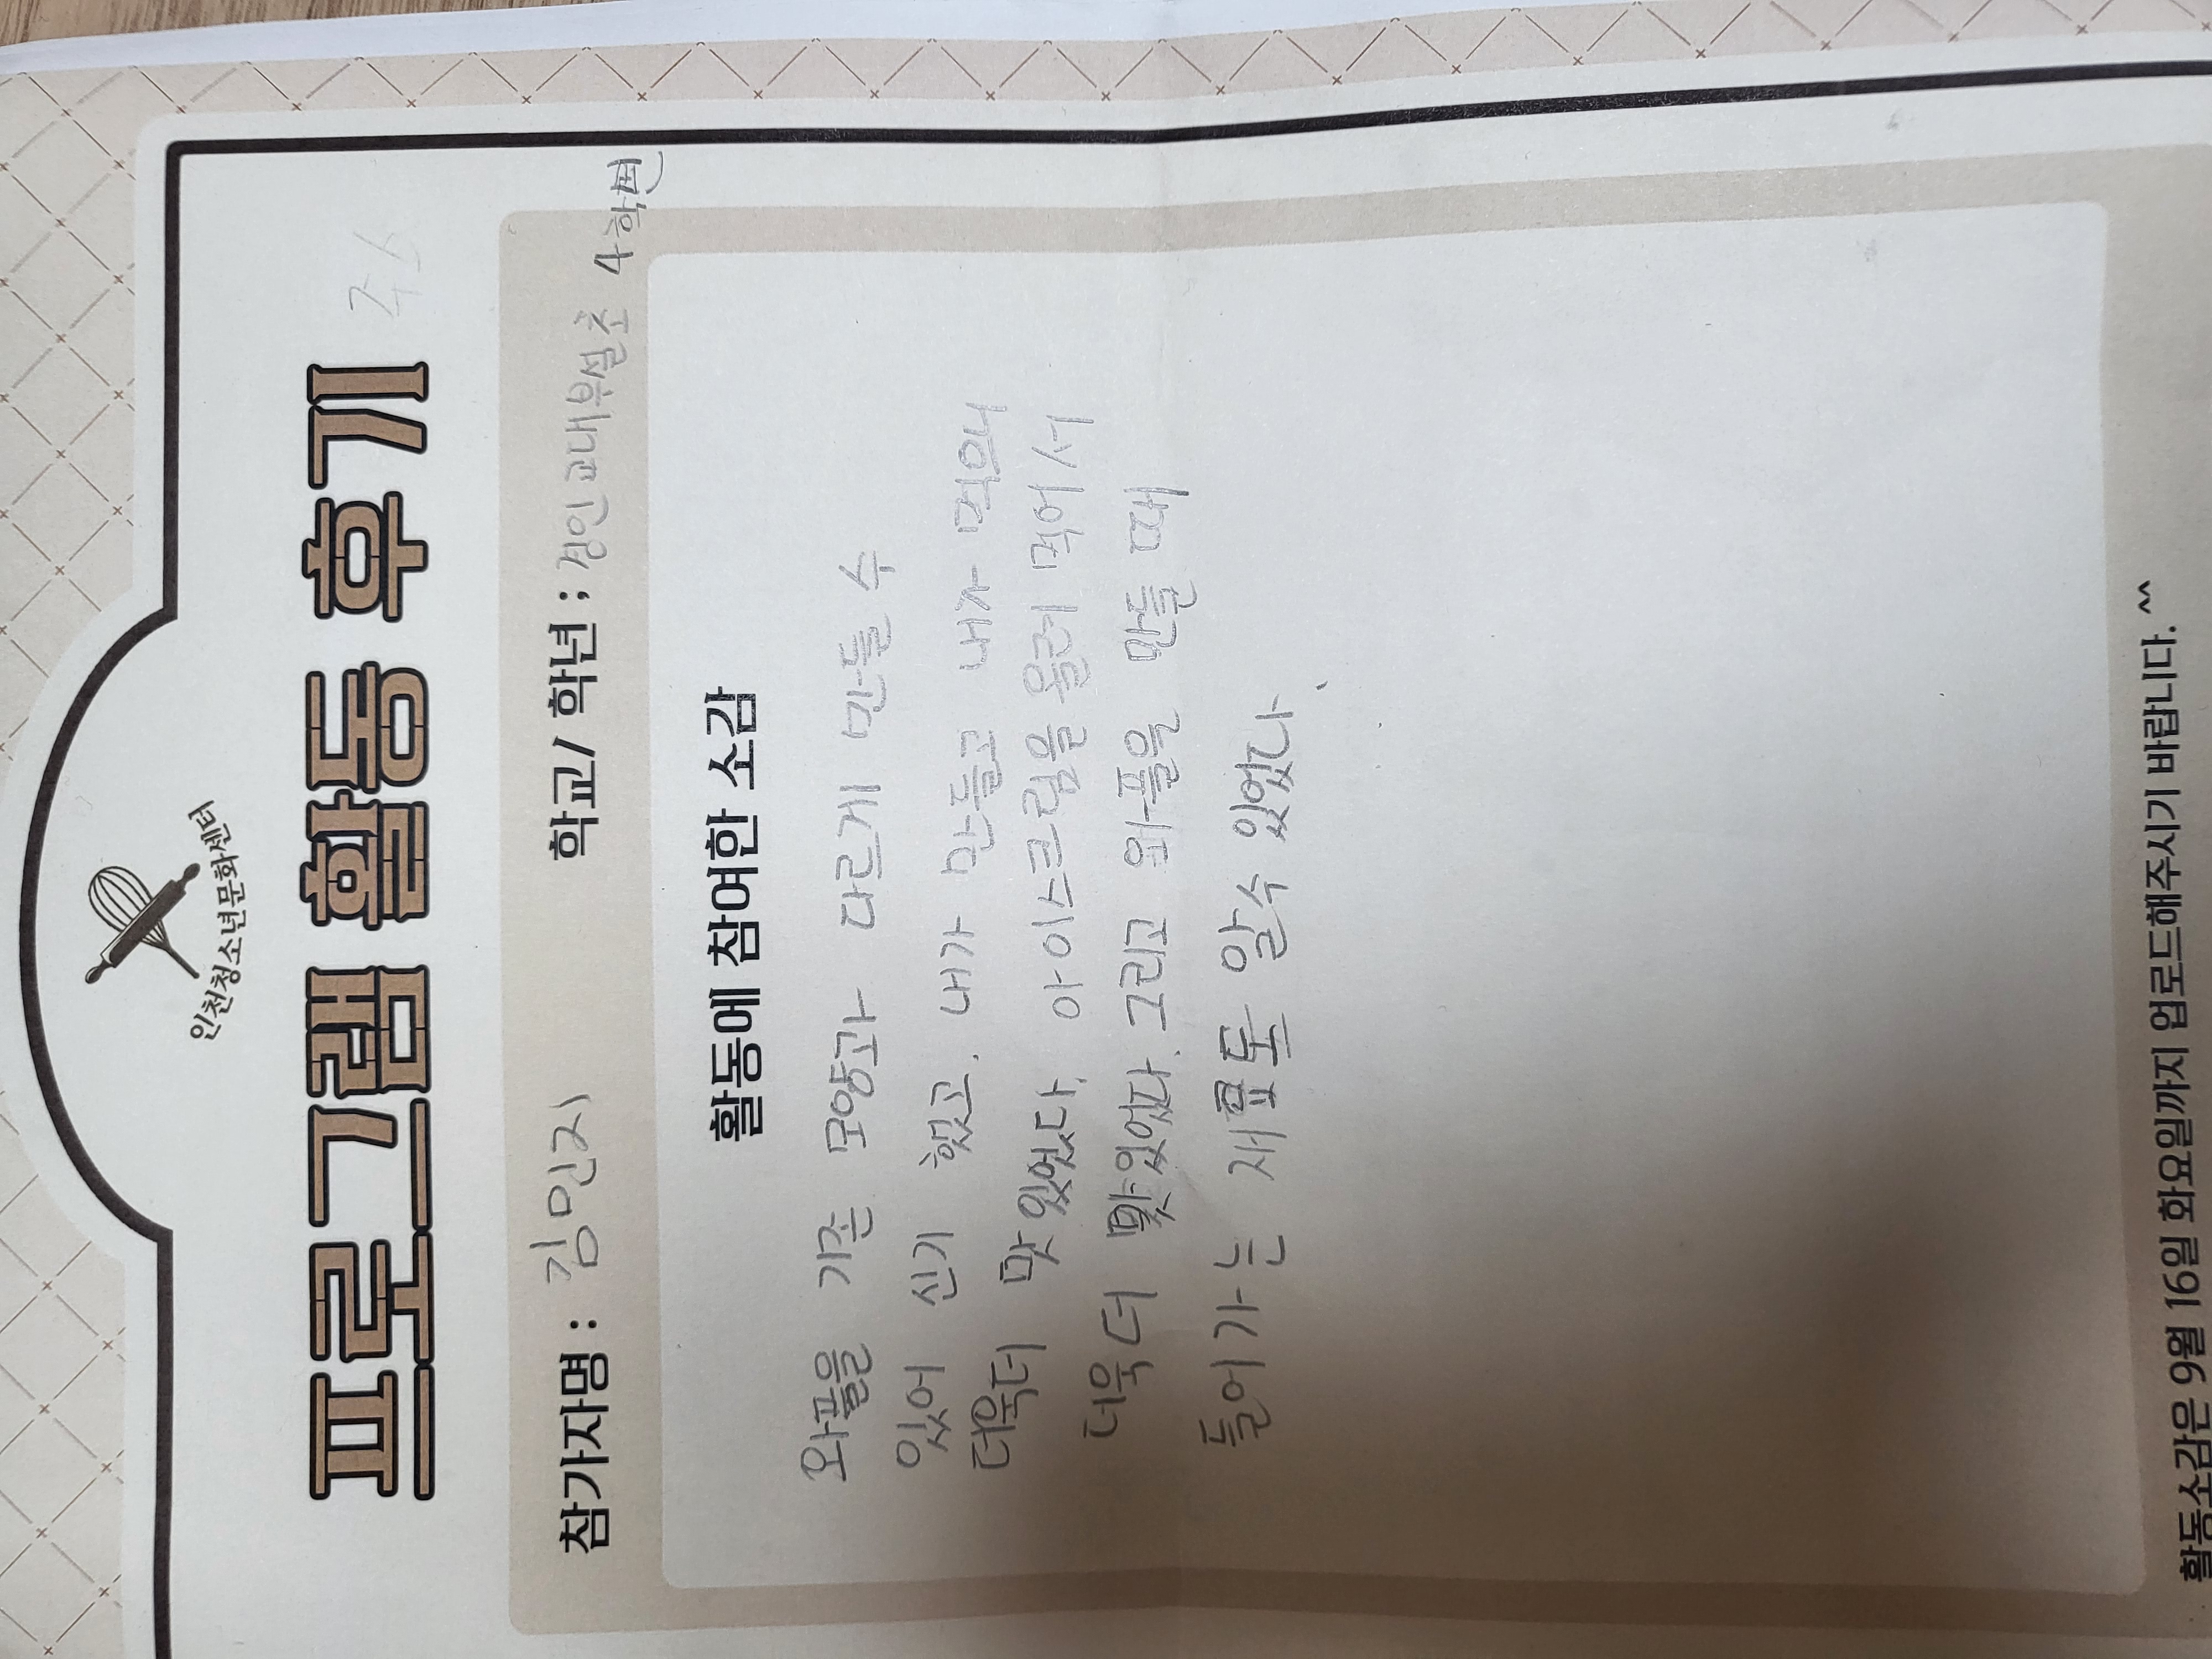 인천청소년문화센터
프로그램 활동 후기
참가자명 : 김민지 학교/ 학년 : 경인교대부설초 4학년
활동에 참여한 소감
와플을 기존 모양과 다르게 만들 수
있어 신기 했고. 내가 만들고 내가 먹으니
더욱더 맛있었다. 아이스크림을 올려 먹어서
더욱 더 맛있었다. 그리고 와플을 만들 때
들어가는 재료도 알수 있었다.
활동소감은 9월 16일 화요일까지 업로드해주시기 바랍니다. ^^